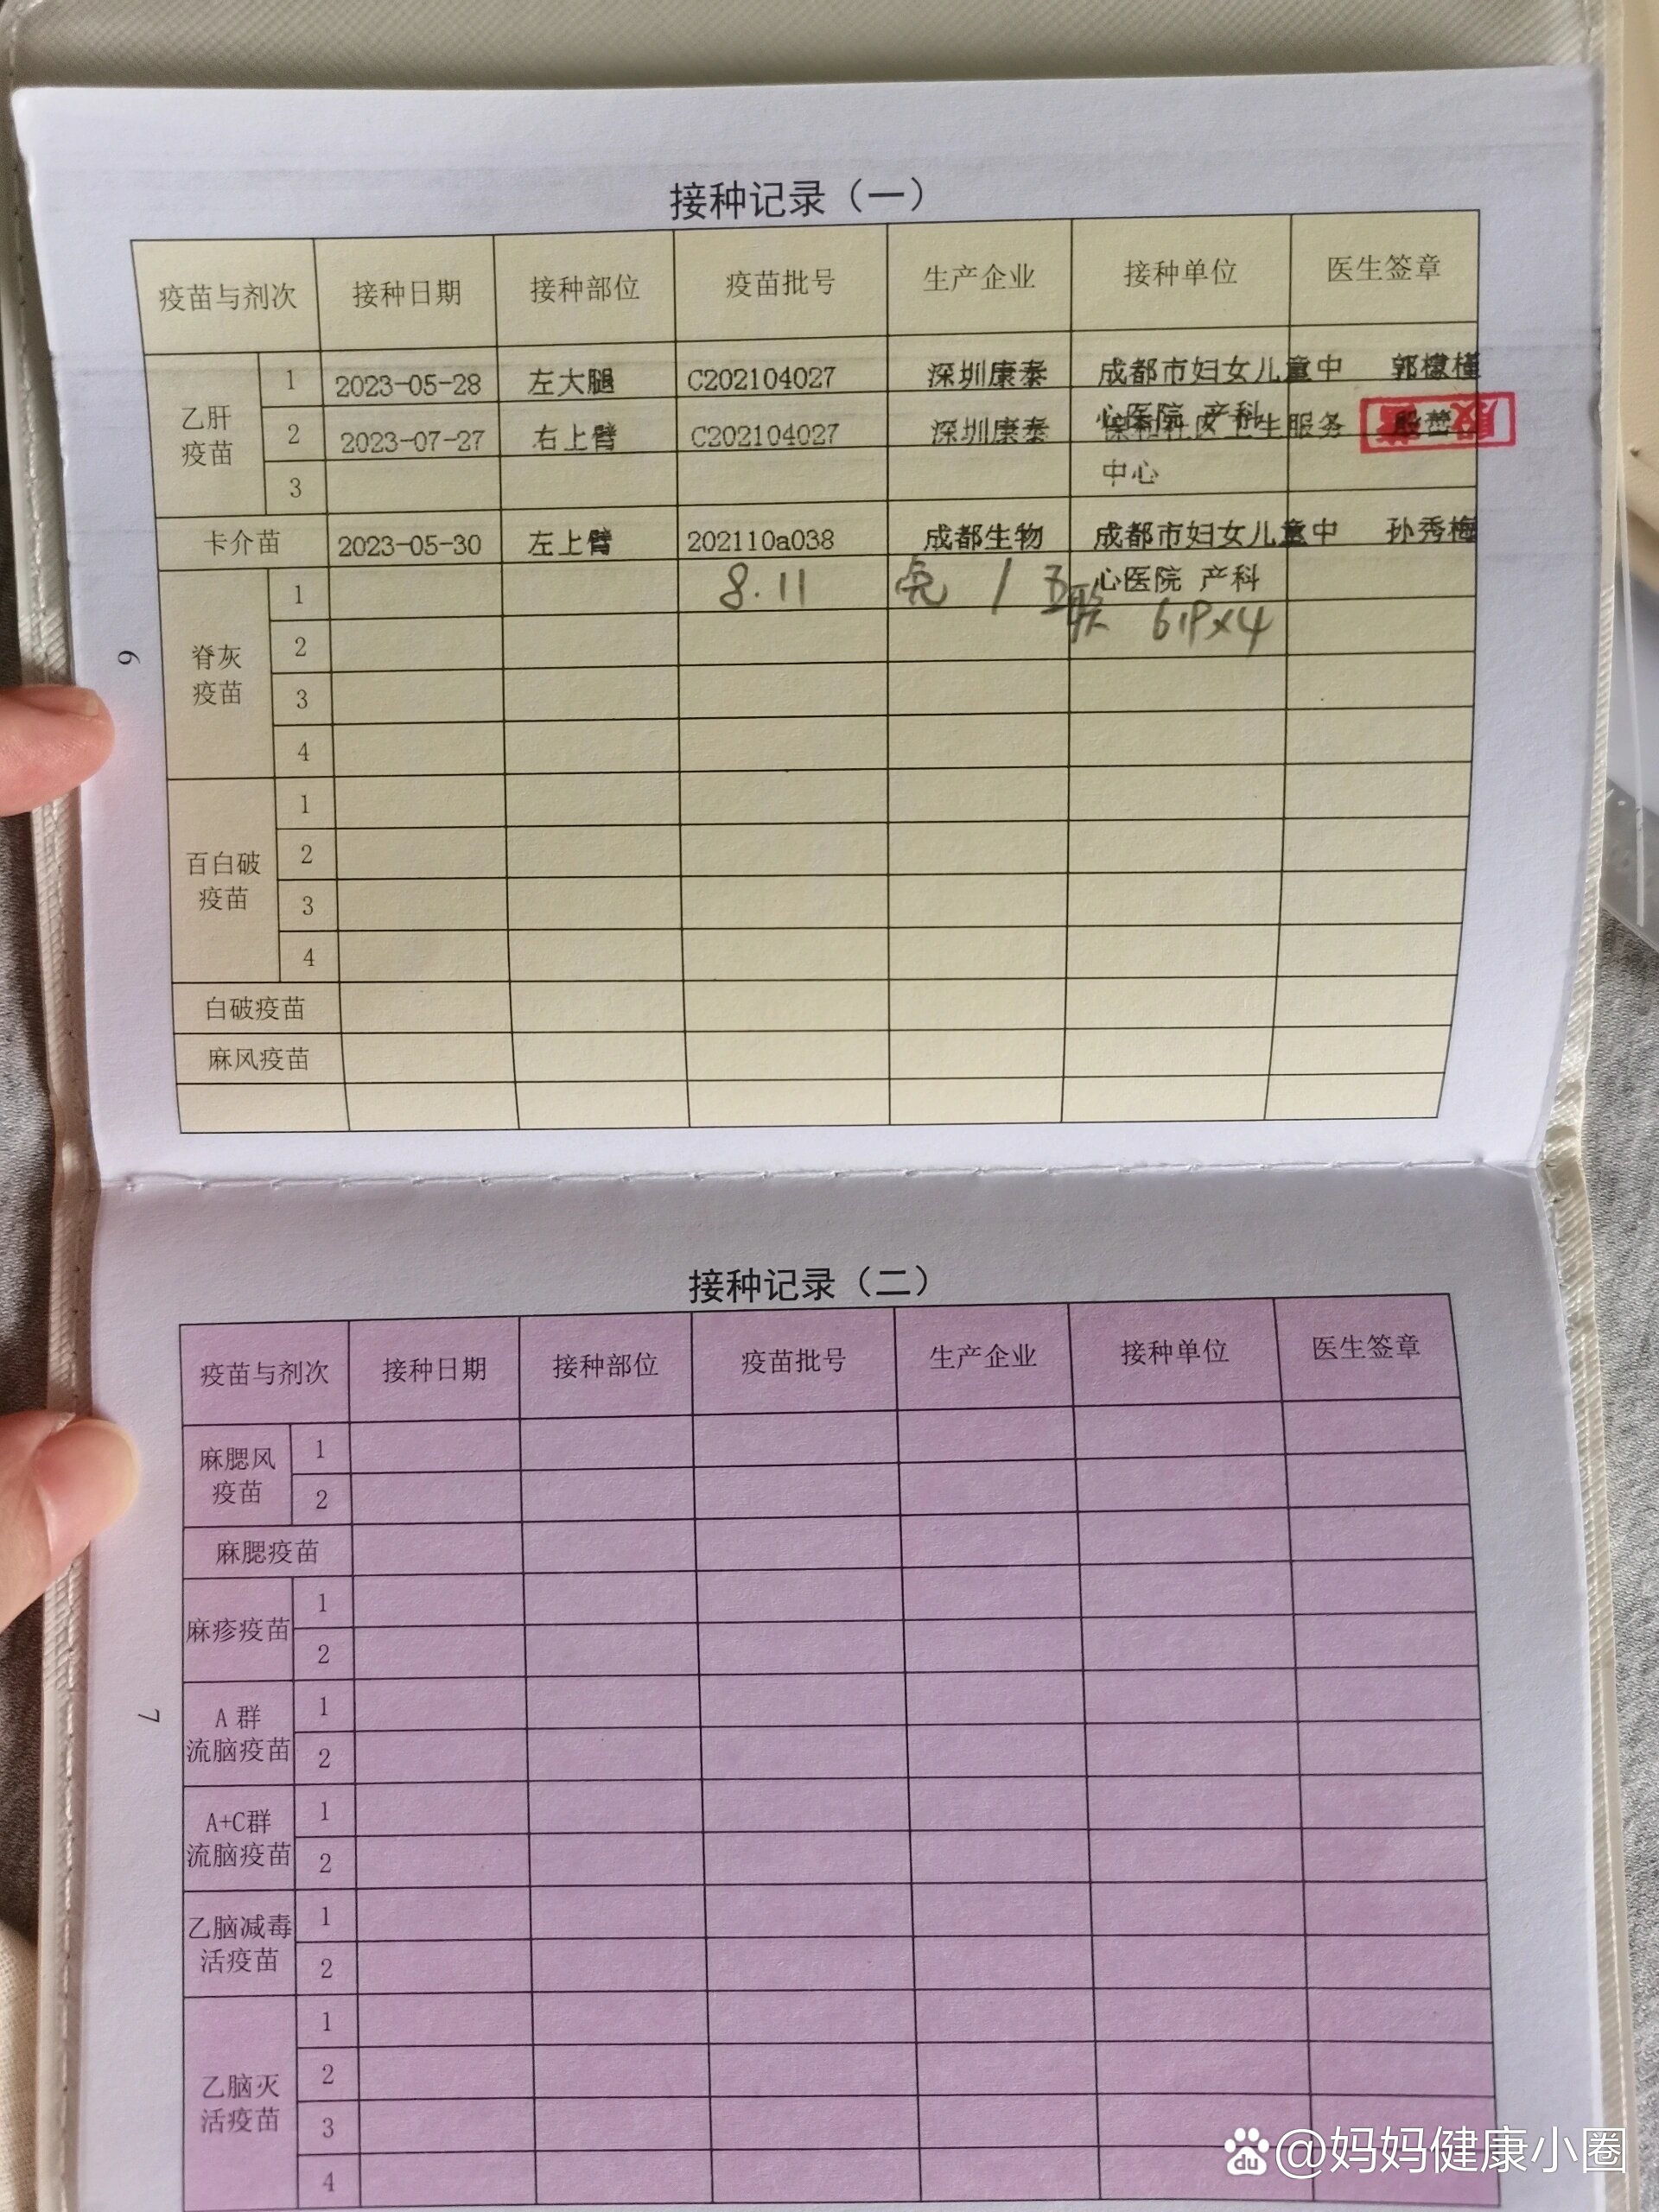 接种记录（一）
疫苗与剂次 接种日期 接种部位 疫苗批号 生产企业 接种单位 医生签章
乙肝疫苗 1 2023-05-28 左大腿 C202104027 深圳康泰 成都市妇女儿童中心医院 产科
2 2023-07-27 右上臂 C202104027 深圳康泰 保和社区卫生服务中心
3
卡介苗 2023-05-30 左上臂 202110a038 成都生物 成都市妇女儿童中心医院 产科 孙秀梅
脊灰疫苗 1 8.11 / 五联
2
3
4
百白破疫苗 1
2
3
4
白破疫苗
麻风疫苗
6
接种记录（二）
疫苗与剂次 接种日期 接种部位 疫苗批号 生产企业 接种单位 医生签章
麻腮风疫苗 1
2
麻腮疫苗
麻疹疫苗 1
2
A 群流脑疫苗 1
2
A+C群流脑疫苗 1
2
乙脑减毒活疫苗 1
2
乙脑灭活疫苗 1
2
3
4
7
du @妈妈健康小圈